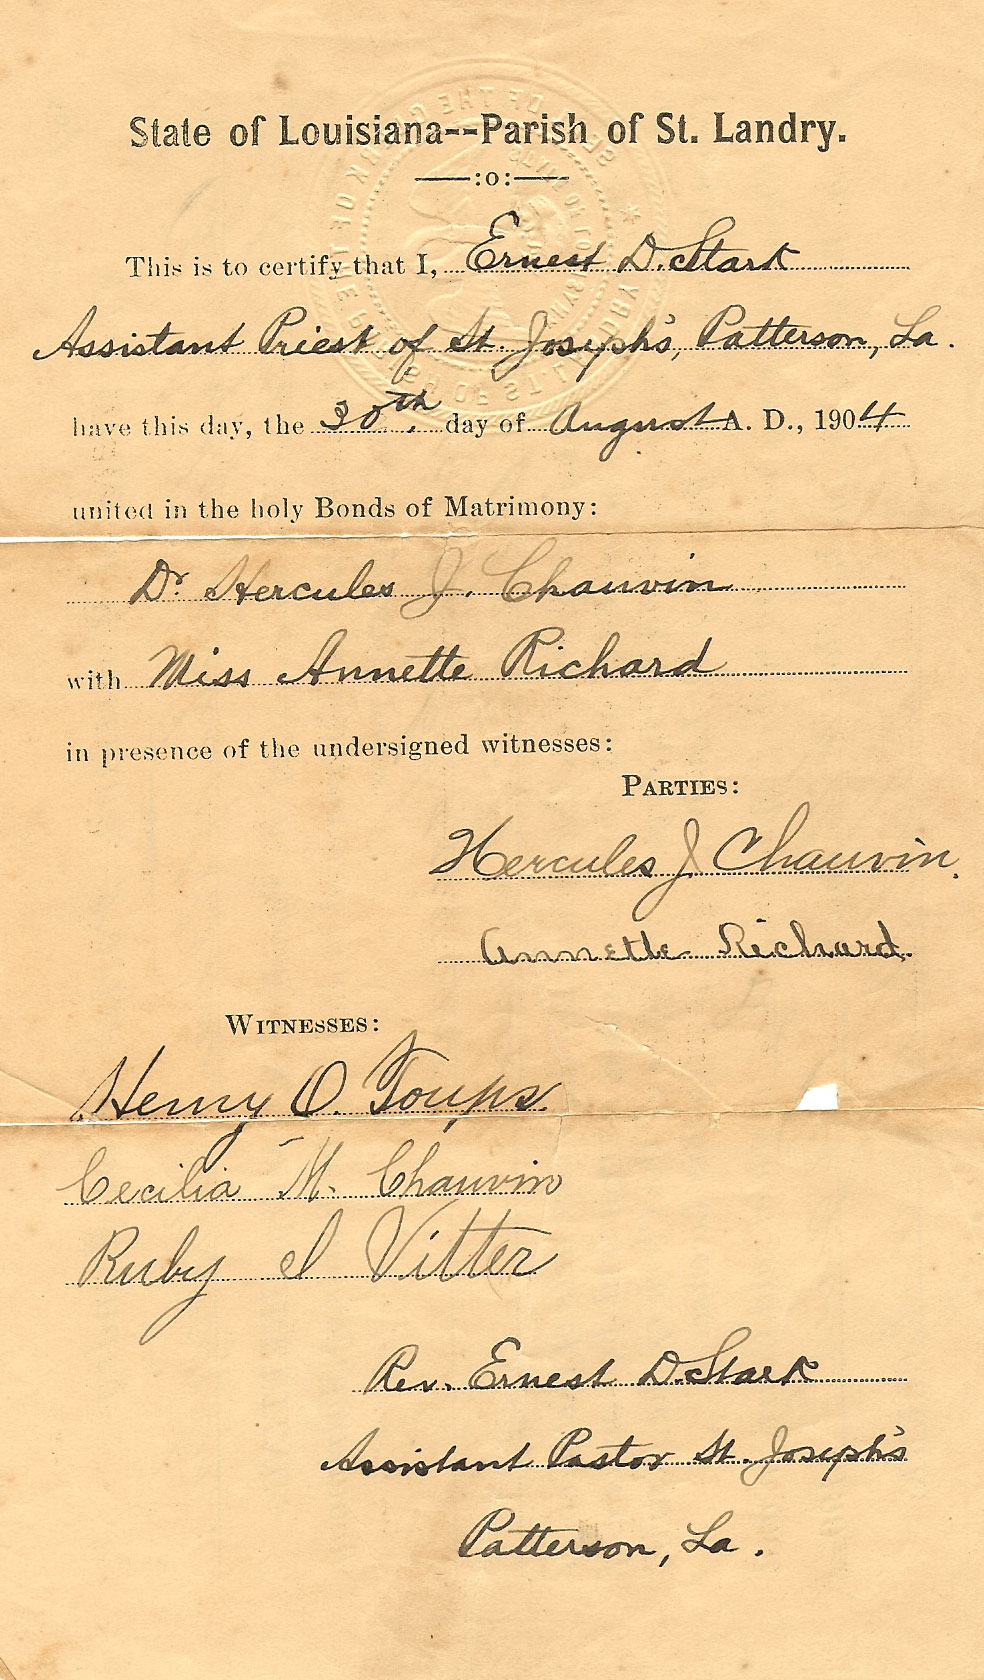 State of Louisiana--Parish of St. Landry.
:o:
This is to certify that I, Ernest D. Stark
Assistant Priest of St. Joseph's, Patterson, La.
have this day, the 30th. day of August A. D., 1904
united in the holy Bonds of Matrimony:
Dr Hercules J. Chauvin
with Miss Annette Richard
in presence of the undersigned witnesses:
PARTIES:
Hercules J Chauvin.
Annette Richard.
WITNESSES:
Henry O. Toups.
Cecilia M. Chauvin
Ruby I Vitter
Rev. Ernest D. Stark
Assistant Pastor St. Joseph's
Patterson, La.